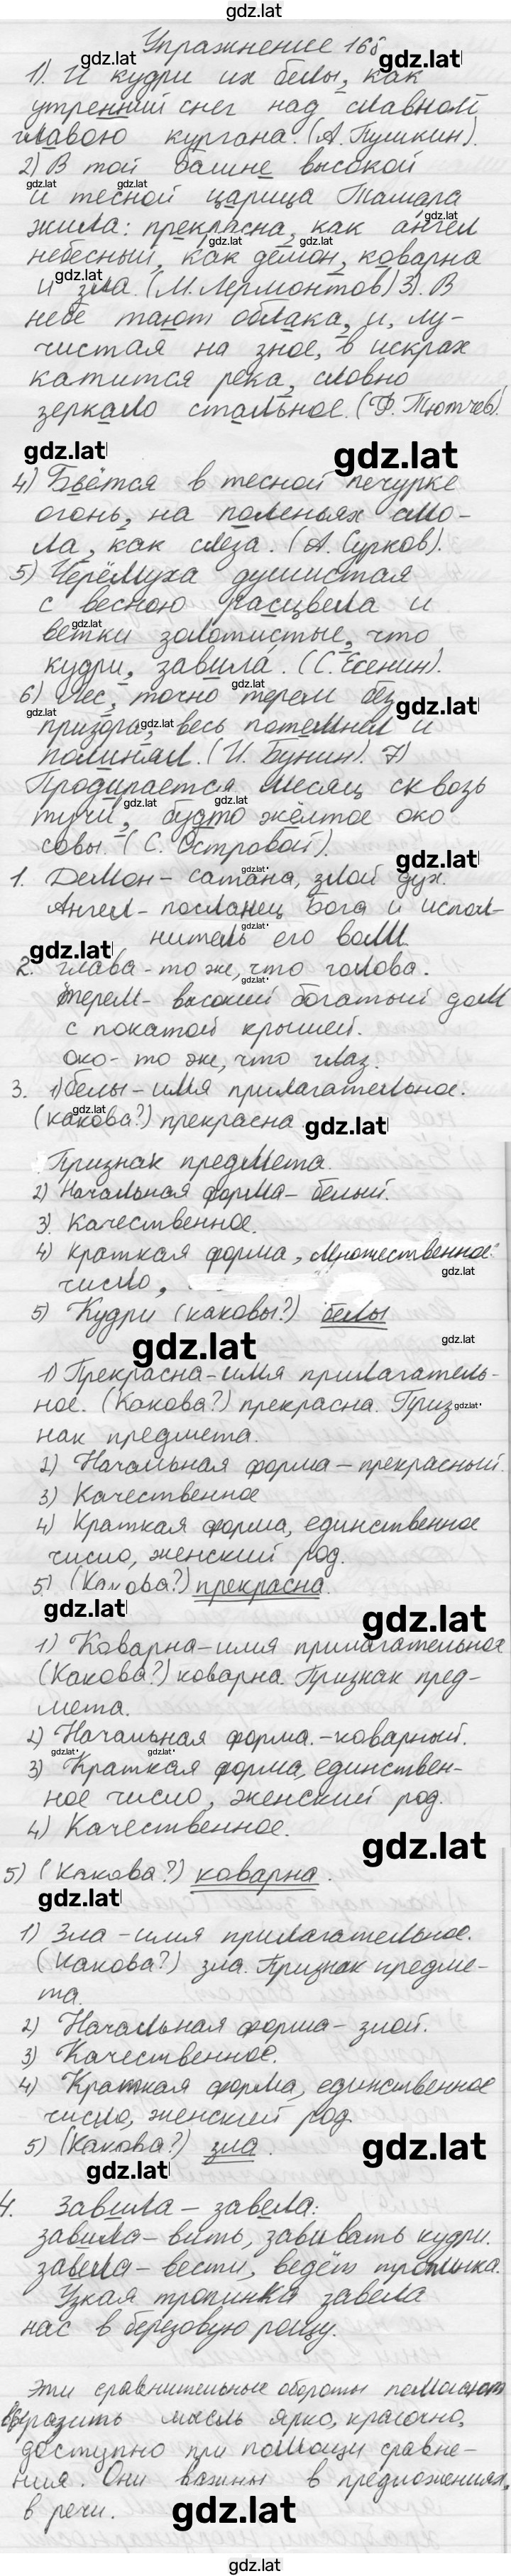 gdz.lat
Упражнение 168
gdz.lat
gdz.lat
1). И кудри их белы, как
утренний снег над славной
главою кургана. (А. Пушкин).
2) В той башне высокой
gdz.lat gdz.lat
и тесной царица Тамара
gdz.lat
жила: прекрасна, как ангел
gdz.lat gdz.lat
небесный, как демон, коварна
gdz.lat
и зла. (М. Лермонтов) 3). В
небе тают облака, и, лу-
чистая на зное, в искрах
катится река, словно
зеркало стальное. (Ф. Тютчев).
gdz.lat gdz.lat
4) Бьётся в тесной печурке
огонь, на поленьях смо-
ла, как слеза. (А. Сурков).
5) Черёмуха душистая
с весною расцвела и
gdz.lat
ветки золотистые, что
кудри, завила. (С. Есенин).
gdz.lat
6) Лес, точно терем без
gdz.lat gdz.lat
gdz.lat
призора, весь потемнел и
полинял. (И. Бунин). 7)
Продирается месяц сквозь
gdz.lat gdz.lat
тучи, будто жёлтое око
совы. (С. Островой).
gdz.lat
gdz.lat
1. Демон - сатана, злой дух.
Ангел - посланец Бога и испол-
gdz.lat
нитель его воли.
gdz.lat
2. Глава - то же, что голова.
gdz.lat
Терем - высокий богатый дом
с покатой крышей.
Око - то же, что глаз.
3. 1) белы - имя прилагательное.
gdz.lat
(какова?) прекрасна
gdz.lat
Признак предмета.
2) Начальная форма - белый.
3). Качественное.
4) краткая форма, множественное
gdz.lat
число,
5) Кудри (каковы?) белы
gdz.lat
gdz.lat
1) Прекрасна - имя прилагатель-
ное. (Какова?) прекрасна. Приз-
gdz.lat
нак предмета.
2) Начальная форма - прекрасный.
3) Качественное
4) Краткая форма, единственное
число, женский род.
5) (Какова?) прекрасна.
gdz.lat
gdz.lat
1) Коварна - имя прилагательное
(Какова?) коварна. Признак пред-
мета.
2) Начальная форма. - коварный.
gdz.lat gdz.lat
3) Краткая форма, единствен-
ное число, женский род.
4) Качественное.
gdz.lat
5) (Какова?) коварна.
gdz.lat
1) Зла - имя прилагательное.
(Какова?) зла. Признак предме-
та.
2) Начальная форма - злой.
3) Качественное.
4) Краткая форма, единственное
число, женский род.
5) (Какова?) зла.
gdz.lat
gdz.lat
4. Завила - завела:
завила - вить, завивать кудри.
завела - вести, ведёт тропинка.
Узкая тропинка завела
нас в березовую рощу.
Эти сравнительные обороты помогают
выразить мысль ярко, красочно,
доступно при помощи сравне-
ния. Они важны в предложениях,
в речи.
gdz.lat
gdz.lat